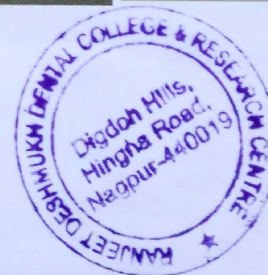 RANJEET DESHMUKH DENTAL COLLEGE & RESEARCH CENTRE
Digdoh Hills,
Hingna Road,
Nagpur-440019